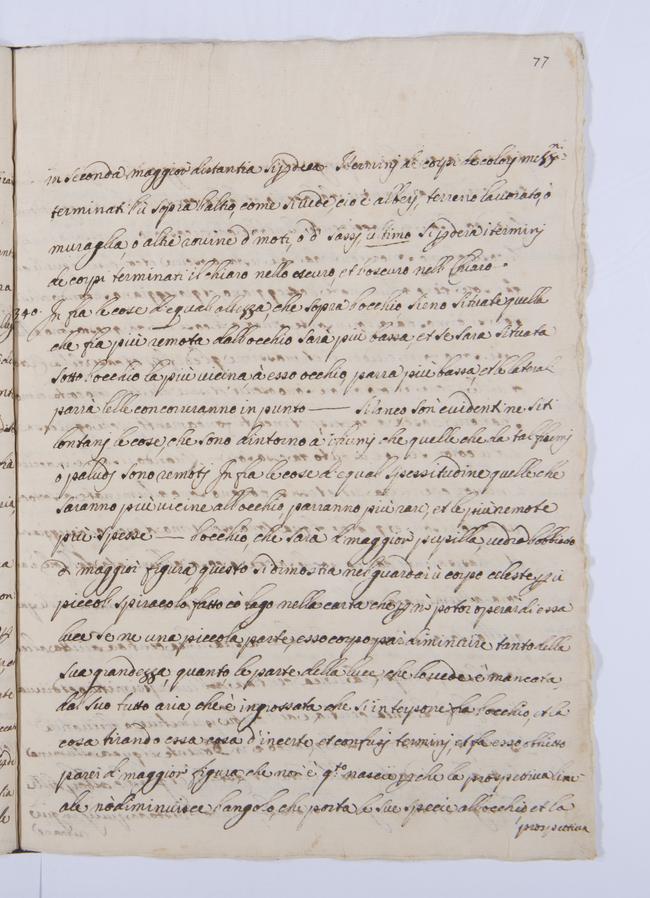 77
in seconda maggior distantia si perdera i termini de corpi de colori
terminati l'ù sopra l'altro, come si uede, cio è alberi, terreno lauorato, ò
muraglia, ò altre rouine di moti, ò di sassi ultimo si perdera i termini
de corpi terminati il chiaro nello oscuro, et l'oscuro nell chiaro.
340 In fra le cose d'equal altezza che sopra l'occhio sieno situate quella
che fia più remota dall'occhio sarà più bassa, et se sara situata
sotto l'occhio la più uicina à esso occhio parra piu bassa, et le laterali
parralelle concorreranno in punto — Manco son euidenti ne siti
lontani le cose, che sono d'intorno à i fiumi che quelle che da tal fiumi
o paludi sono remoti In fra le cose d'equal spessitudine quelle che
saranno più uicine all'occhio parranno più rare, et le più remote
più spesse — L'occhio, che sarà di maggior pupilla, uedrà l'obbietto
di maggior figura questo si dimostra nel guardar ù corpo celeste per ù
piccol spiracolo fatto cò l'ago nella carta che per nò poter operar di essa
luce se ne una piccola parte, esso corpo par diminuire tanto della
sua grandezza quanto la parte della luce, che lo uede è mancata
dal suo tutto aria, che è ingrossata che si interpone fra l'occhio, et la
cosa tirando essa cosa d'incerti et confusi termini et fa esso obbietto
parer di maggior figura che non è qto nasce perche la prospettiua line-
ale nò diminuisce l'angolo, che porta le sue specie all'occhio et la
prospettiua